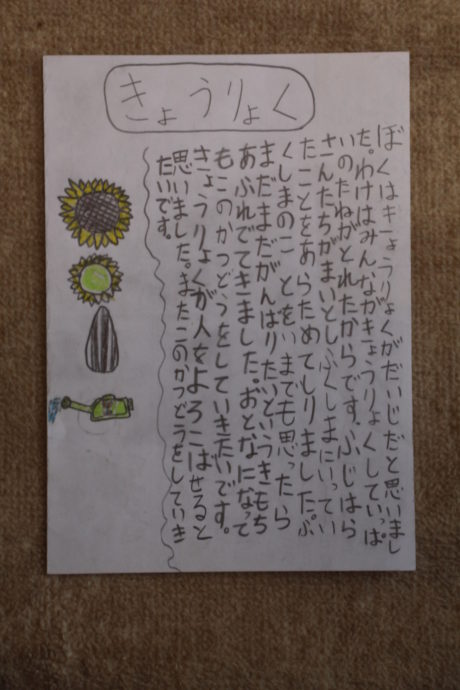 きょうりょく
ぼくはきょうりょくがだいじだと思いまし
た。わけはみんながきょうりょくしていっぱ
いのたねがとれたからです。ふじはら
さんたちがまいとしふくしまにいってい
たことをあらためてしりました。ふ
くしまのことをいまでも思ったら
まだまだがんばりたいというきもち
あふれでてきました。おとなになって
もこのかつどうをしていきたいです。
きょうりょくが人をよろこばせると
思いました。またこのかつどうをしていき
たいです。